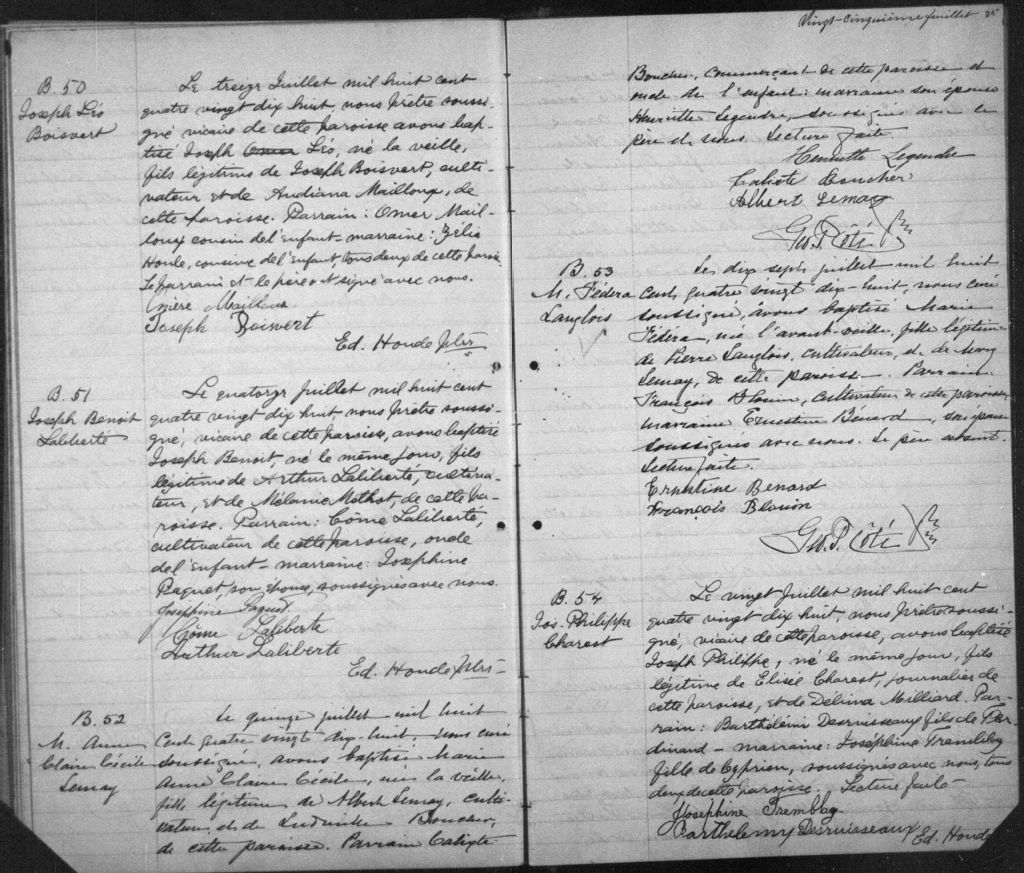 B. 50
Joseph Léo
Boisvert
Le treize Juillet mil huit cent
quatre vingt dix huit nous prêtre soussi-
gné vicaire de cette paroisse avons bap-
tisé Joseph Omer Léo, né la veille,
fils légitime de Joseph Boisvert, culti-
vateur et de Audiana Mailloux, de
cette paroisse. Parrain: Omer Mail-
loux cousin de l'enfant - marraine: Zélia
Houle, cousine de l'enfant tous deux de cette paroisse
Le parrain et le père ont signé avec nous.
Mailloux
Joseph Boisvert
Ed. Houde ptre
B. 51
Joseph Benoit
Laliberté
Le quatorze Juillet mil huit cent
quatre vingt dix huit nous prêtre soussi-
gné, vicaire de cette paroisse, avons baptisé
Joseph Benoit, né le même jour, fils
légitime de Arthur Laliberté, cultiva-
teur, et de Mélanie Mothot, de cette pa-
roisse. Parrain: Côme Laliberté,
cultivateur de cette paroisse, oncle
de l'enfant - marraine: Josephine
Paquet, son épouse, soussignés avec nous.
Joséphine Paquet
Côme Laliberté
Arthur Laliberté
Ed. Houde ptre
B. 52
M. Anne
Claire Cécile
Lemay
Le quinze juillet mil huit
cent quatre vingt dix-huit, nous curé
soussigné, avons baptisé Marie
Anne Claire Cécile, née la veille,
fille légitime de Albert Lemay, culti-
vateur, et de Ludivine Boucher,
de cette paroisse. Parrain Calixte
Vingt-cinquième feuillet 25
Boucher, commerçant de cette paroisse et
oncle de l'enfant: marraine son épouse
Henriette Legendre, soussignés avec le
père et nous. Lecture faite.
Henriette Legendre
Calixte Boucher
Albert Lemay
Geo. P. Côté
B. 53
M. Fédora
Langlois
Le dix sept juillet mil huit
cent quatre vingt dix-huit, nous curé
soussigné, avons baptisé Marie
Fédora, née l'avant-veille, fille légitime
de Pierre Langlois, cultivateur, et de Mary
Lemay, de cette paroisse. Parrain
François Blouin, cultivateur de cette paroisse,
marraine Ernestine Bénard, son épouse
soussignés avec nous. Le père absent.
Lecture faite.
Ernestine Benard
François Blouin
Geo. P. Côté
B. 54
Jos. Philippe
Charest
Le vingt Juillet mil huit cent
quatre vingt dix huit, nous prêtre soussi-
gné, vicaire de cette paroisse, avons baptisé
Joseph Philippe, né le même jour, fils
légitime de Elisée Charest, journalier de
cette paroisse, et de Délina Milliard. Par-
rain: Barthélémi Desruisseaux fils de Fer-
dinand - marraine: Joséphine Tremblay
fille de Cyprien, soussignés avec nous, tous
deux de cette paroisse. Lecture faite
Josephine Tremblay
Barthelemy Desruisseaux
Ed. Houde